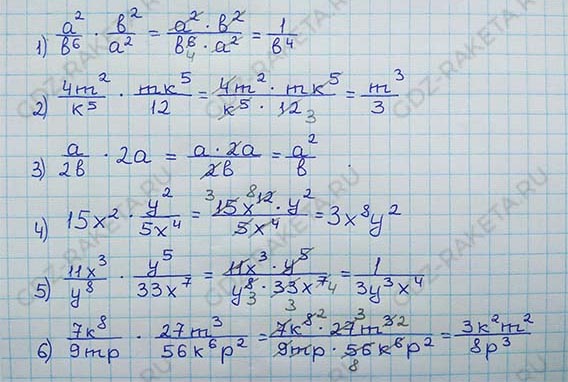 1) a²/b⁶ · b²/a² = a² · b²/b⁶ · a² 4 = 1/b⁴
2) 4m²/k⁵ · mk⁵/12 = 4m² · mk⁵/k⁵ · 12 3 = m³/3
3) a/2b · 2a = a · 2a/2b = a²/b
4) 15x² · y²/5x⁴ = 3 15x⁸ ¹² · y²/5x⁴ = 3x⁸y²
5) 11x³/y⁸ · y⁵/33x⁷ = 11x³ · y⁵/y⁸ 3 · 33x⁷ 3 4 = 1/3y³x⁴
6) 7k⁸/9mp · 27m³/56k⁶p² = 7k⁸ ² · 27 3 m³ ²/9mp · 56 8 k⁶p² = 3k²m²/8p³
GDZ-RAKETA.RU